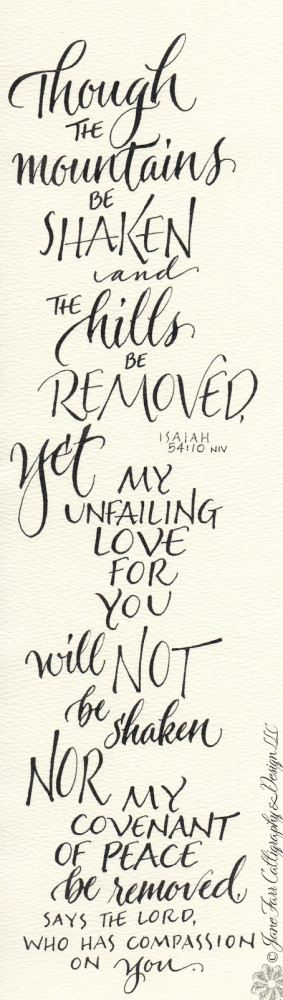 Though
THE
mountains
BE
SHAKEN
and
THE hills
BE
REMOVED,
ISAIAH
54:10 NIV
yet MY
UNFAILING
LOVE
FOR
YOU
will NOT
be shaken
NOR MY
COVENANT
OF PEACE
be removed
SAYS THE LORD,
WHO HAS COMPASSION
ON you.
© Jane Farr Calligraphy & Design, LLC